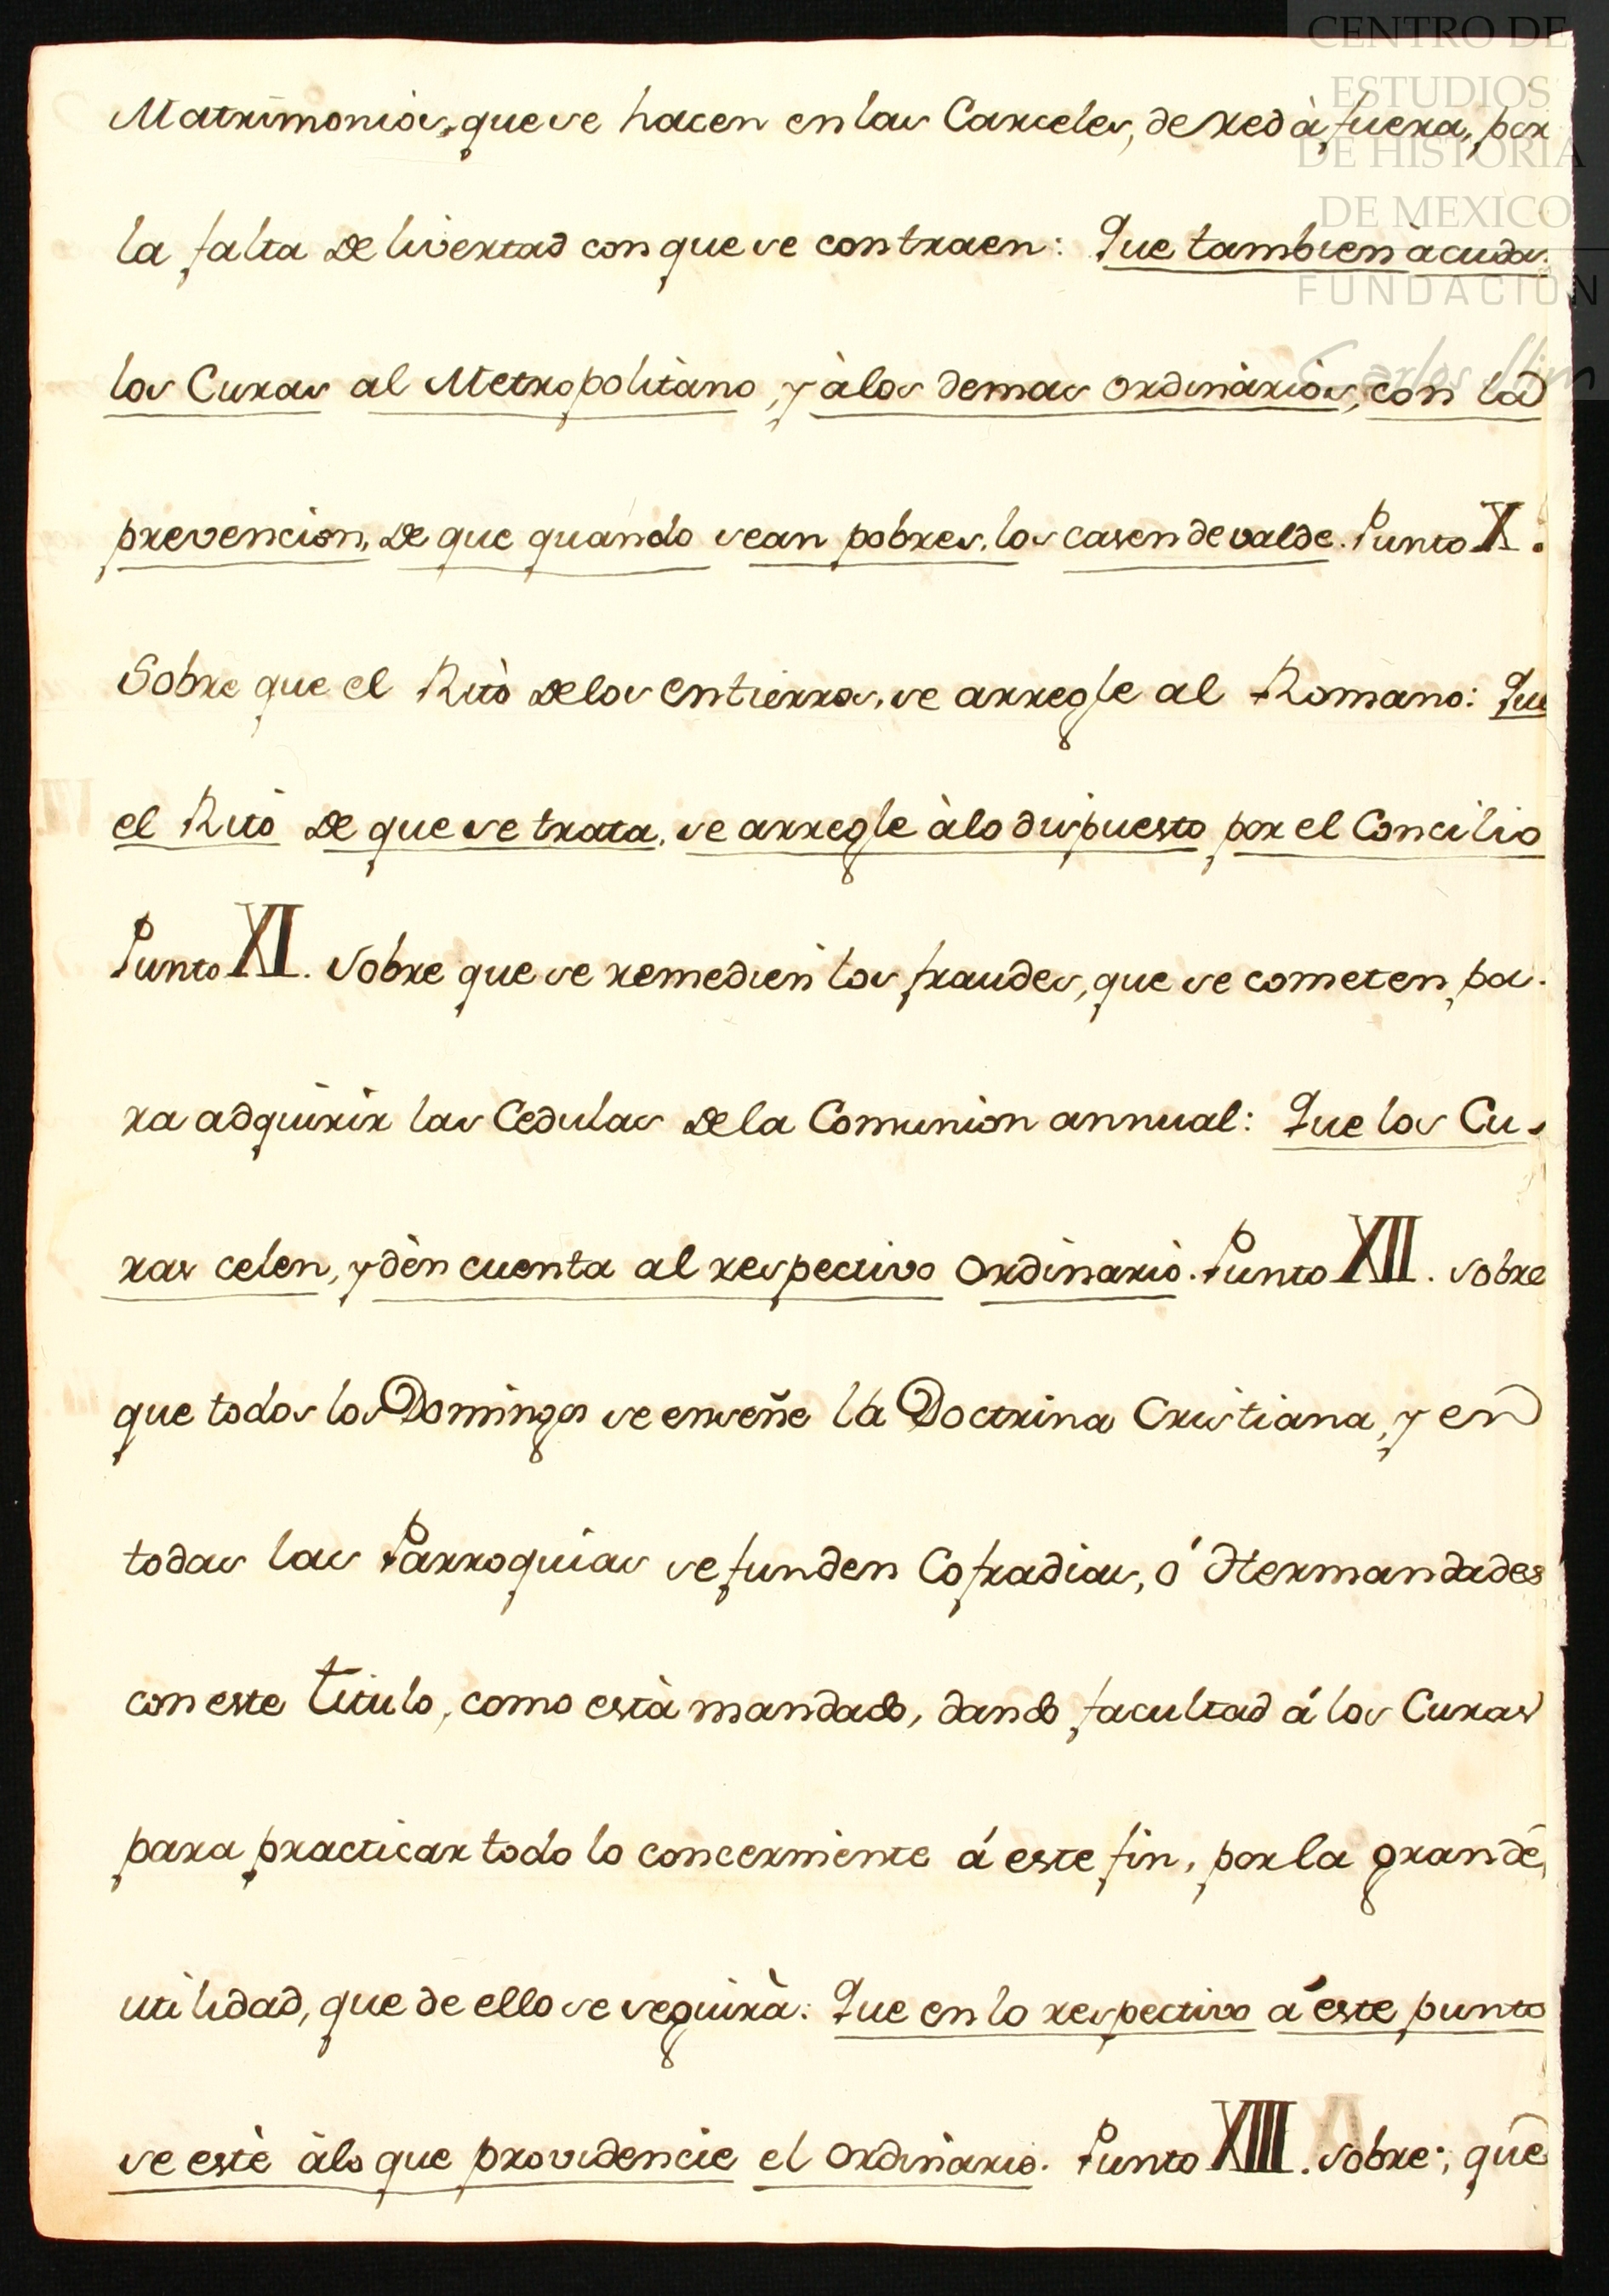 CENTRO DE
ESTUDIOS
DE HISTORIA
DE MEXICO
FUNDACION
Carlos Slim
Matrimonios, que se hacen en las Carceles, de red à fuera, por
la falta de livertad con que se contraen: Que tambien àcudan
los Curas al Metropolitano, y àlos demas ordinàrios, con la
prevencion, de que quando sean pobres, los casen de valde. Punto X.
Sobre que el Ritò delos entierros, se arregle al Romano: Que
el Ritò de que se trata, se arregle àlo dispuesto por el Concilio
Punto XI. Sobre que se remedien los fraudes, que se cometen, pa-
ra adquirir las Cedulas dela Comunion annual: Que los Cu-
ras celen, y dèn cuenta al respectivo ordinàrio. Punto XII. Sobre
que todos los Domingos se enseñe la Doctrina Cristiana, y en
todas las Parroquias se funden Cofradias, ó Hermandades
con este titulo, como està mandado, dando facultad á los Curas
para practicar todo lo concerniente á este fin, por la grande
utilidad, que de ello se seguirà: Que en lo respectivo á este punto
se estè àlo que providencie el ordinàrio. Punto XIII. Sobre; que